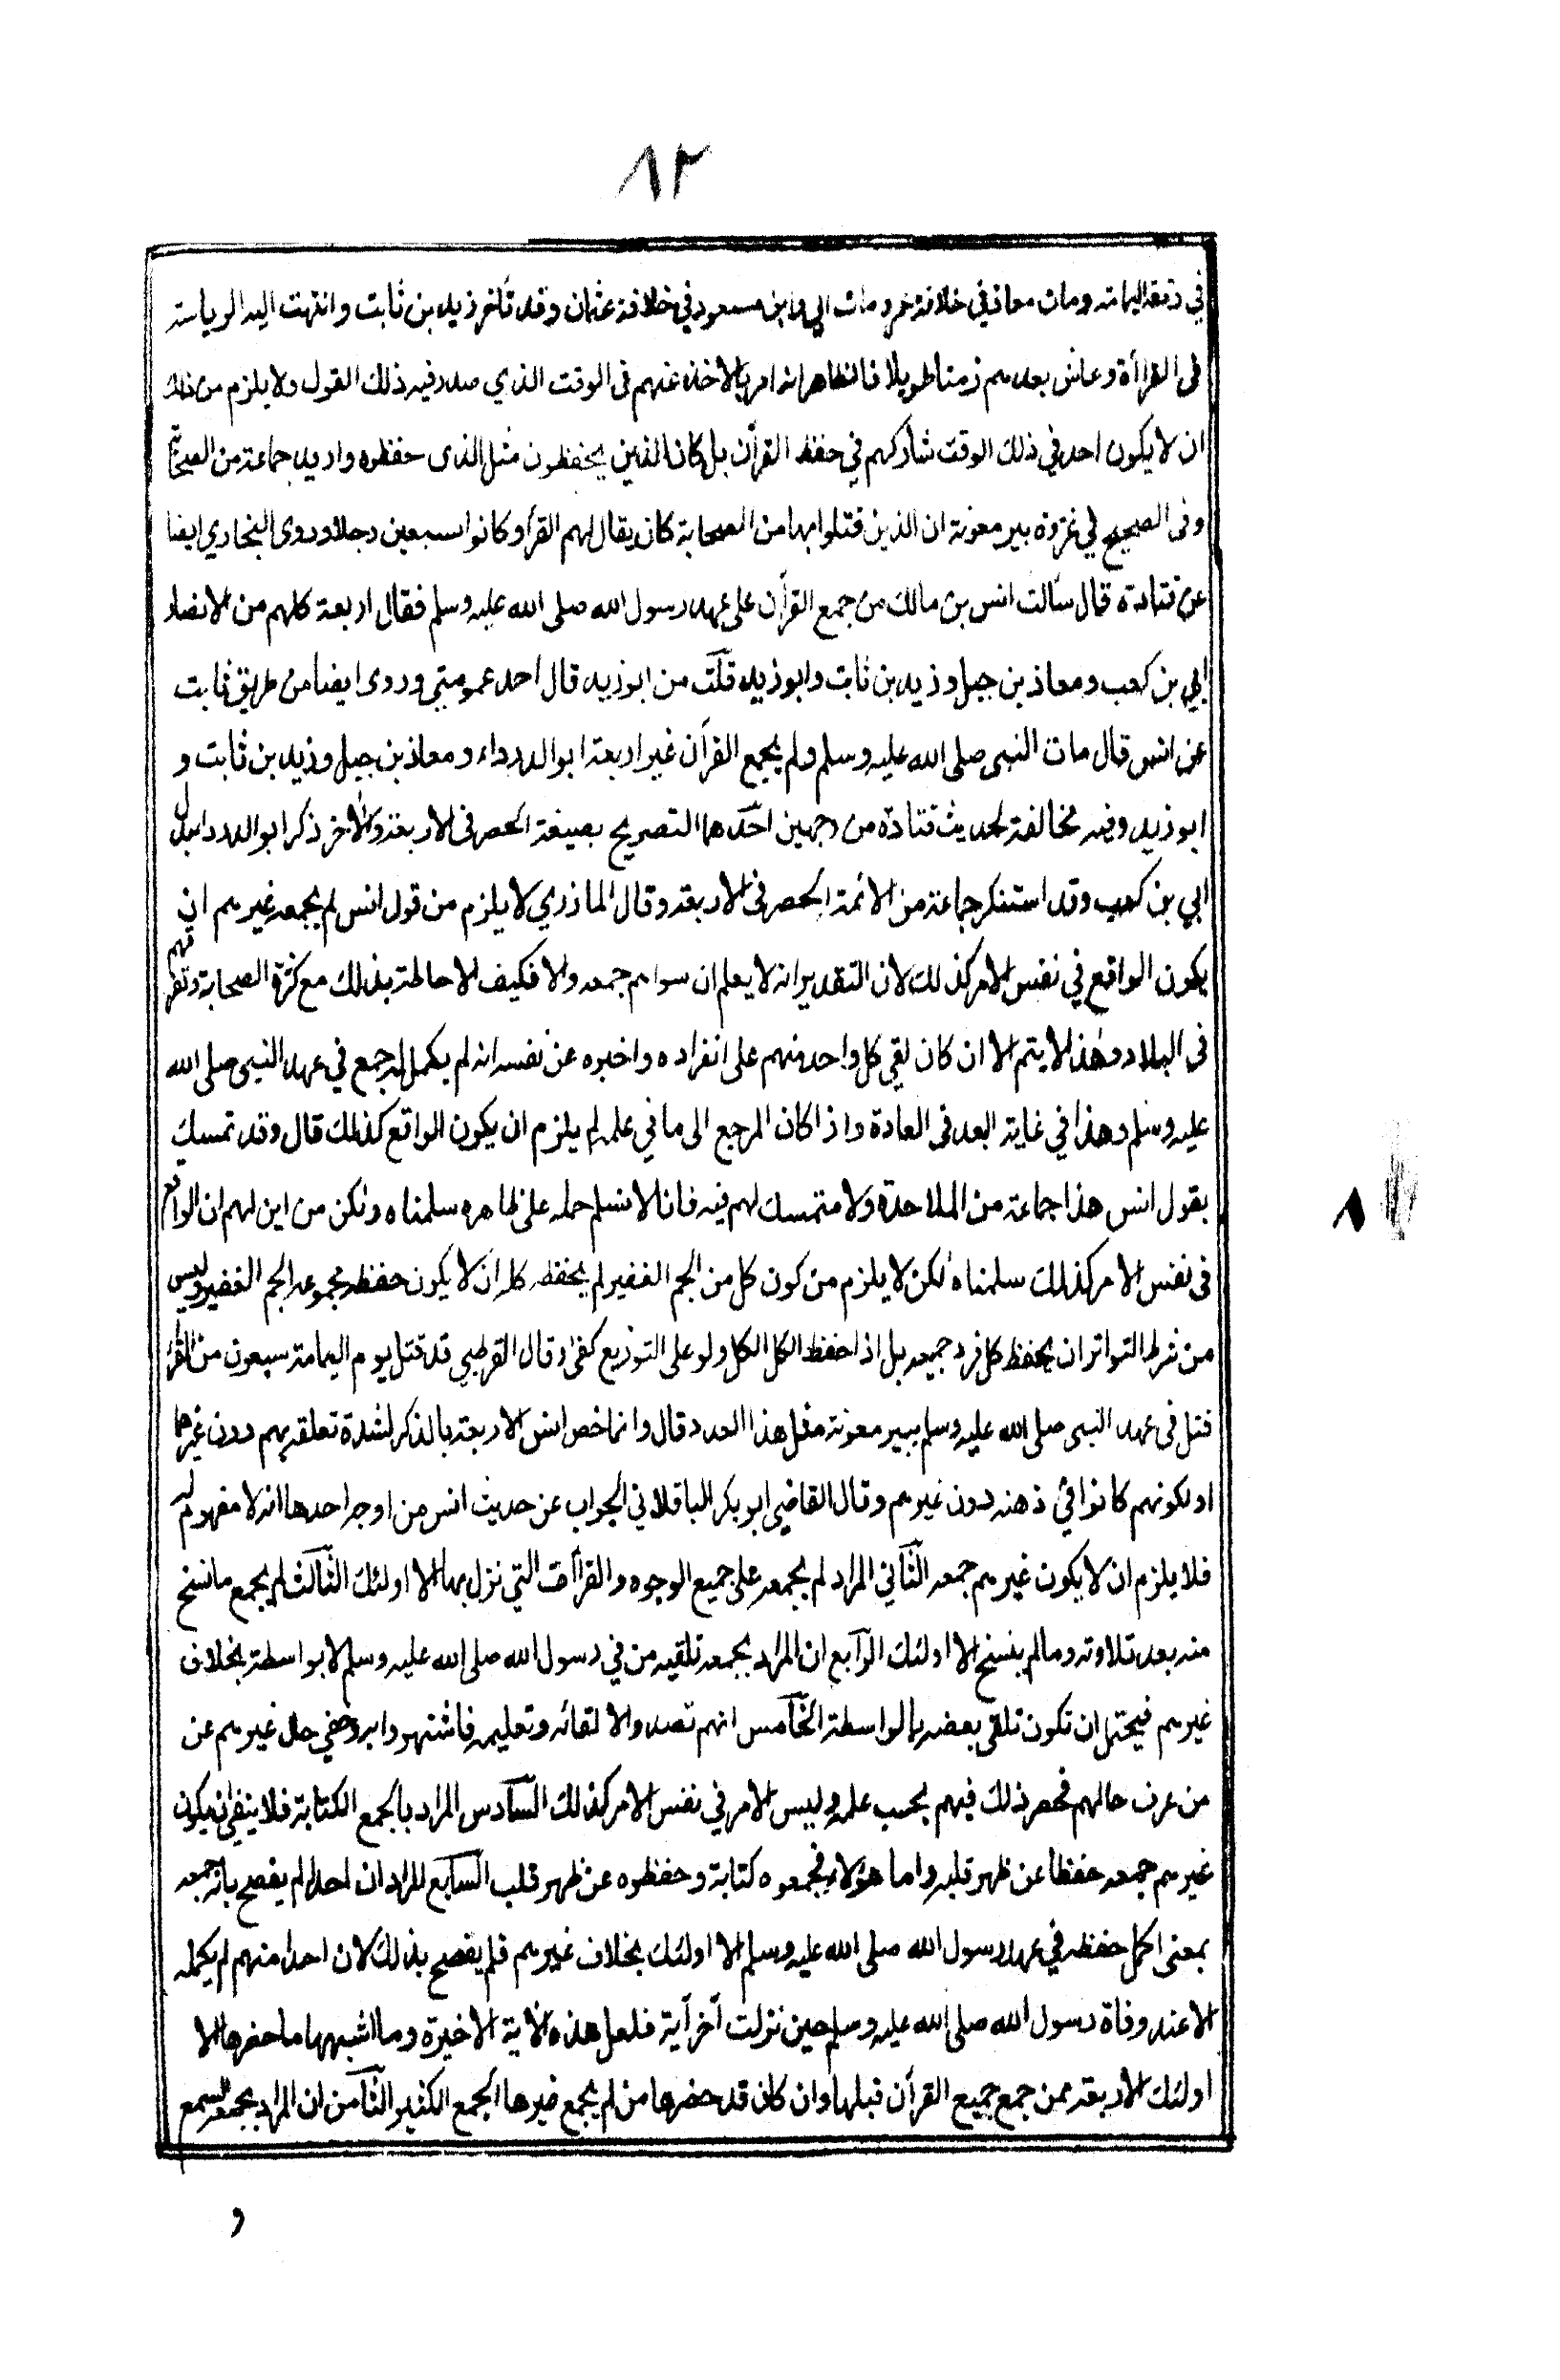 ٨٢
في وقعة اليمامة ومات معاذ في خلافة عمر ومات ابي وابن مسعود في خلافة عثمان وقد تأخر زيد بن ثابت وانتهت اليه الرياسة
فى القراأة وعاش بعدهم زمنا طويلا فالظاهر انه امر بالاخذ عنهم فى الوقت الذي صدر فيه ذلك القول ولا يلزم من ذلك
ان لا يكون احد في ذلك الوقت شاركهم في حفظ القرآن بل كان الذين يحفظون مثل الذى حفظوه وازيد جماعة من الصحابة
وفى الصحيح في غزوة بير معونة ان الذين قتلوا بها من الصحابة كان يقال لهم القرأ وكانوا سبعين رجلا وروى البخاري ايضا
عن قتادة قال سألت انس بن مالك من جمع القرآن على عهد رسول الله صلى الله عليه وسلم فقال اربعة كلهم من الانصار
ابي بن كعب ومعاذ بن جبل وزيد بن ثابت وابو زيد قلت من ابو زيد قال احد عمومتي وروى ايضا من طريق ثابت
عن انس قال مات النبى صلى الله عليه وسلم ولم يجمع القرآن غير اربعة ابو الدرداء ومعاذ بن جبل وزيد بن ثابت و
ابو زيد وفيه مخالفة لحديث قتادة من وجهين احدهما التصريح بصيغة الحصر فى الاربعة والأخر ذكر ابو الدردا بدل
ابي بن كعب وقد استنكر جماعة من الائمة الحصر فى الاربعة وقال المازري لا يلزم من قول انس لم يجمعه غيرهم ان
يكون الواقع في نفس الامر كذلك لان التقدير انه لا يعلم ان سواهم جمعه والا فكيف الاحاطة بذلك مع كثرة الصحابة وتفرقهم
فى البلاد وهذا لا يتم الا ان كان لقي كل واحد منهم على انفراده واخبره عن نفسه انه لم يكمل له جمع في عهد النبى صلى الله
عليه وسلم وهذا في غاية البعد فى العادة واذا كان المرجع الى ما في علمه لم يلزم ان يكون الواقع كذلك قال وقد تمسك
بقول انس هذا جماعة من الملاحدة ولا متمسك لهم فيه فانا لا نسلم حمله على ظاهره سلمناه ولكن من اين لهم ان الواقع
فى نفس الامر كذلك سلمناه لكن لا يلزم من كون كل من الجم الغفير لم يحفظه كله ان لا يكون حفظه مجموعه الجم الغفير وليس
من شرط التواتر ان يحفظ كل فرد جميعه بل اذا حفظ الكل الكل ولو على التوزيع كفى وقال القرطبي قد قتل يوم اليمامة سبعون من القرأ
قتل فى عهد النبى صلى الله عليه وسلم ببير معونة مثل هذا العدد قال وانما خص انس الاربعة بالذكر لشدة تعلقه بهم دون غيرهم
او لكونهم كانوا في ذهنه دون غيرهم وقال القاضي ابو بكر الباقلاني الجواب عن حديث انس من اوجه احدها انه لا مفهوم له
فلا يلزم ان لا يكون غيرهم جمعه الثاني المراد لم يجمعه على جميع الوجوه والقرأآت التي نزل بها الا اولئك الثالث لم يجمع ما نسخ
منه بعد تلاوته وما لم ينسخ الا اولئك الرابع ان المراد بجمعه تلقيه من في رسول الله صلى الله عليه وسلم لا بواسطة بخلاف
غيرهم فيحتمل ان تكون تلقى بعضه بالواسطة الخامس انهم تصدوا لا لقائه وتعليمه فاشتهروا به وخفي حال غيرهم عن
من عرف حالهم فحصر ذلك فيهم بحسب علمه وليس الامر في نفس الامر كذلك السادس المراد بالجمع الكتابة فلا ينفى ان يكون
غيرهم جمعه حفظا عن ظهر قلبه واما هؤلاء فجمعوه كتابة وحفظوه عن ظهر قلب السابع المراد ان احدا لم يفصح بانه جمعه
بمعنى اكمل حفظه في عهد رسول الله صلى الله عليه وسلم الا اولئك بخلاف غيرهم فلم يفصح بذلك لان احدا منهم لم يكمله
الا عند وفاة رسول الله صلى الله عليه وسلم حين نزلت آخر آية فلعل هذه الآية الاخيرة وما اشبهها ما حضرها الا
اولئك الاربعة ممن جمع جميع القرآن قبلها وان كان قد حضرها من لم يجمع غيرها الجمع الكثير الثامن ان المراد بجمعه السمع
و
٨